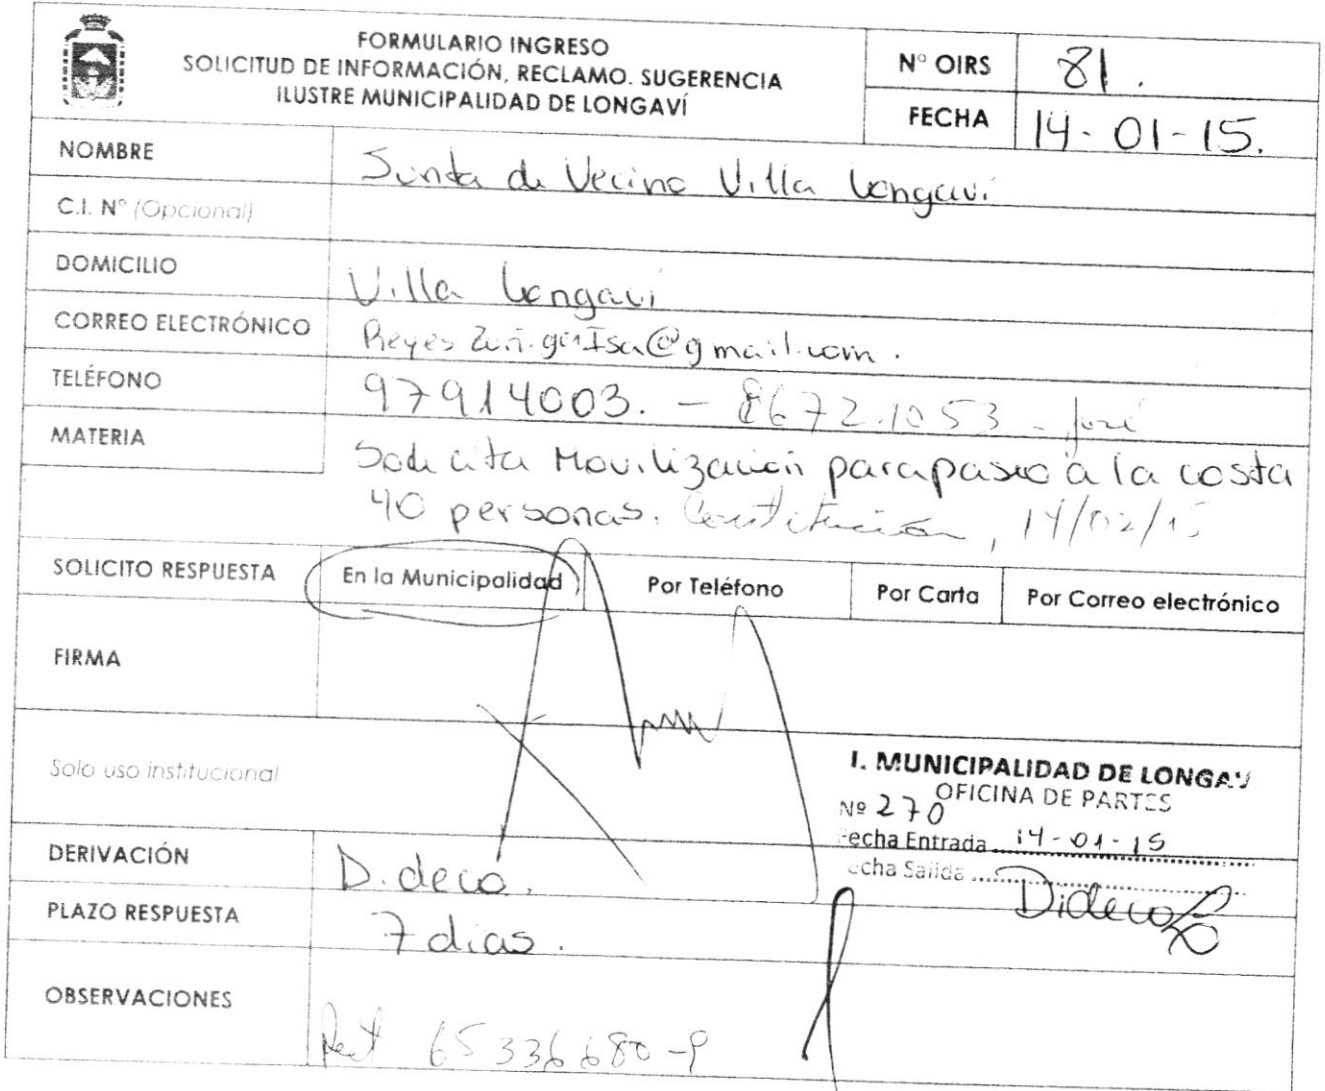 FORMULARIO INGRESO
SOLICITUD DE INFORMACIÓN, RECLAMO. SUGERENCIA
ILUSTRE MUNICIPALIDAD DE LONGAVÍ
N° OIRS 81.
FECHA 14-01-15.
NOMBRE Junta de Vecino Villa Longaví
C.I. N° (Opcional)
DOMICILIO Villa Longaví
CORREO ELECTRÓNICO ReyesZuñigaIsa@gmail.com.
TELÉFONO 97914003. - 86721053 - José
MATERIA Solicita Movilización para paseo a la costa
40 personas. Constitución, 14/02/15
SOLICITO RESPUESTA En la Municipalidad Por Teléfono Por Carta Por Correo electrónico
FIRMA
Solo uso institucional
I. MUNICIPALIDAD DE LONGAVÍ
OFICINA DE PARTES
Nº 270
Fecha Entrada 14-01-15
Fecha Salida
Dideco
DERIVACIÓN Dideco.
PLAZO RESPUESTA 7 dias.
OBSERVACIONES
65336680-9